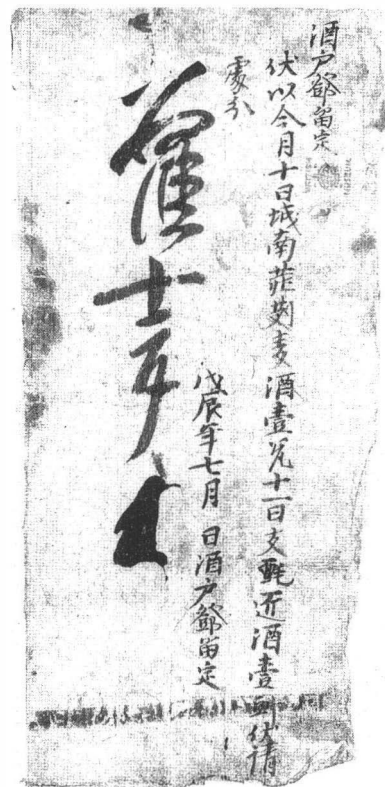 酒户鄧留定
伏以今月十日城南莊刈麦酒壹瓮十一日支氈近酒壹㪷伏請
處分
戊辰年七月 日酒户鄧留定
為憑